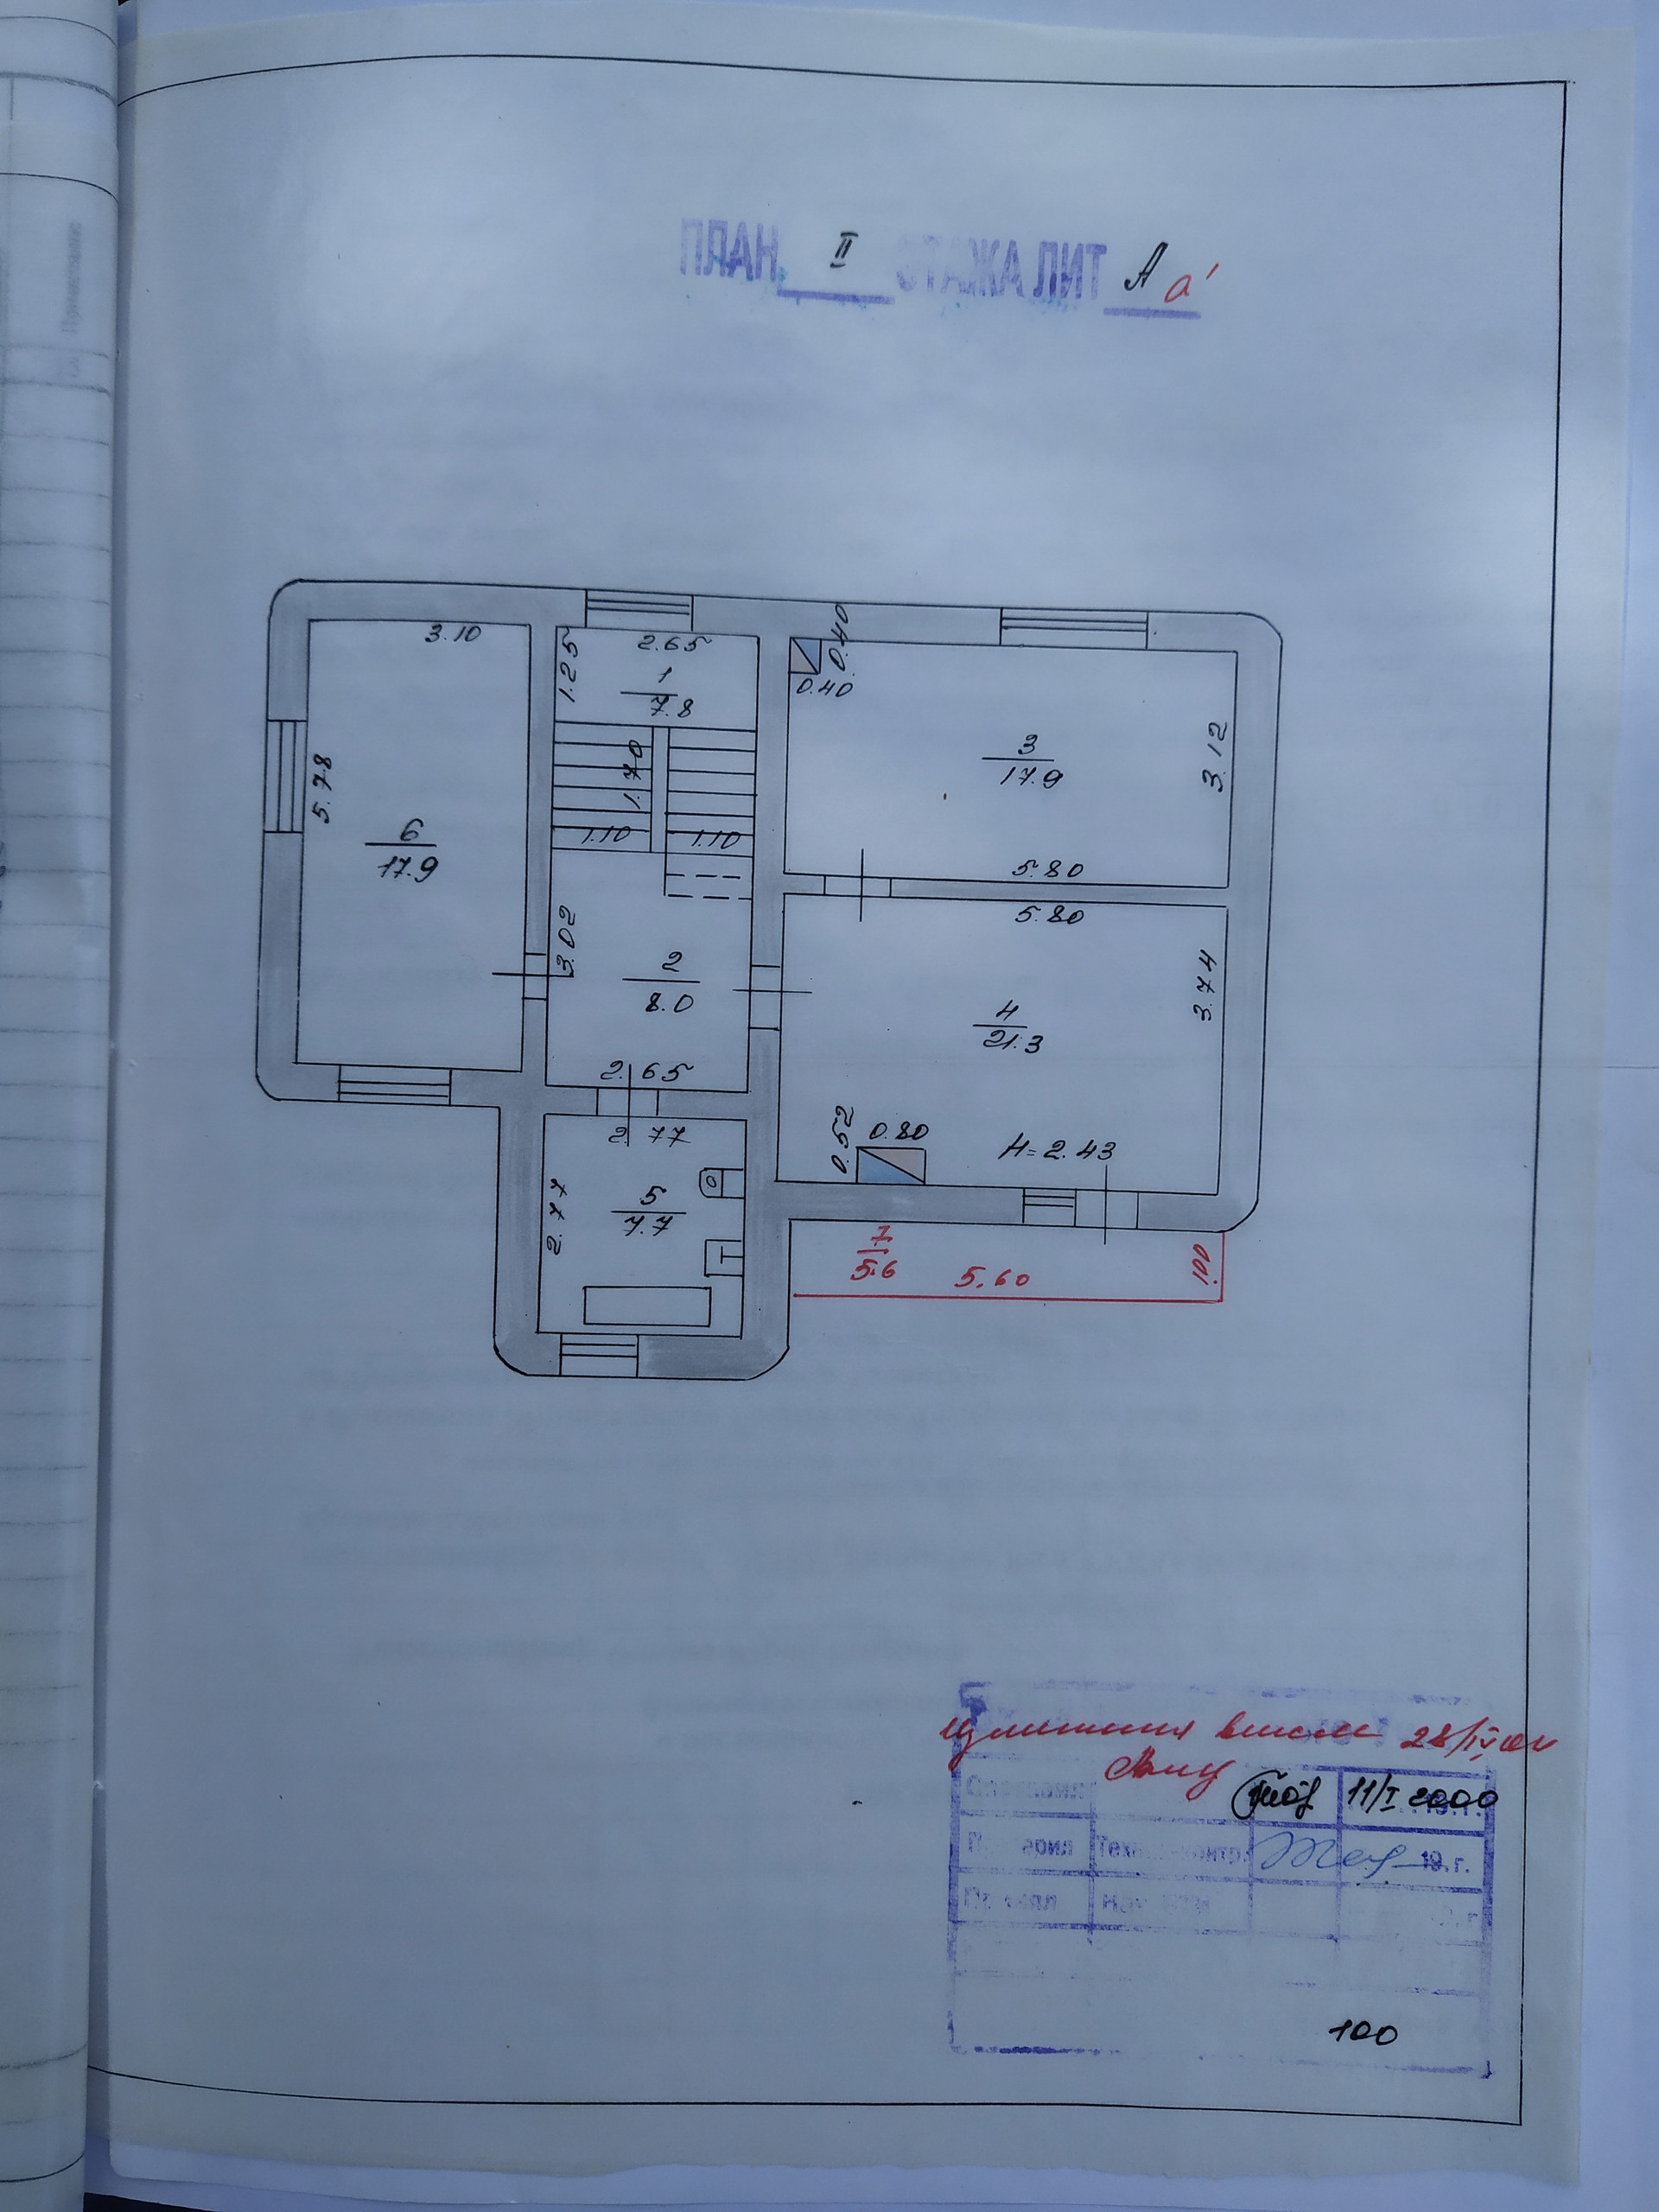 ПЛАН II ЭТАЖА ЛИТ А а'
3.10
2.65
1.25
1
7.8
0.40
0.40
3
17.9
3.12
5.78
1.70
1.10
1.10
6
17.9
5.80
5.80
3.02
2
8.0
3.74
4
21.3
2.65
2.77
0.52
0.80
H=2.43
2.77
5
7.7
7
5.6
5.60
1.00
28/IV
11/I 2000
19 г.
100